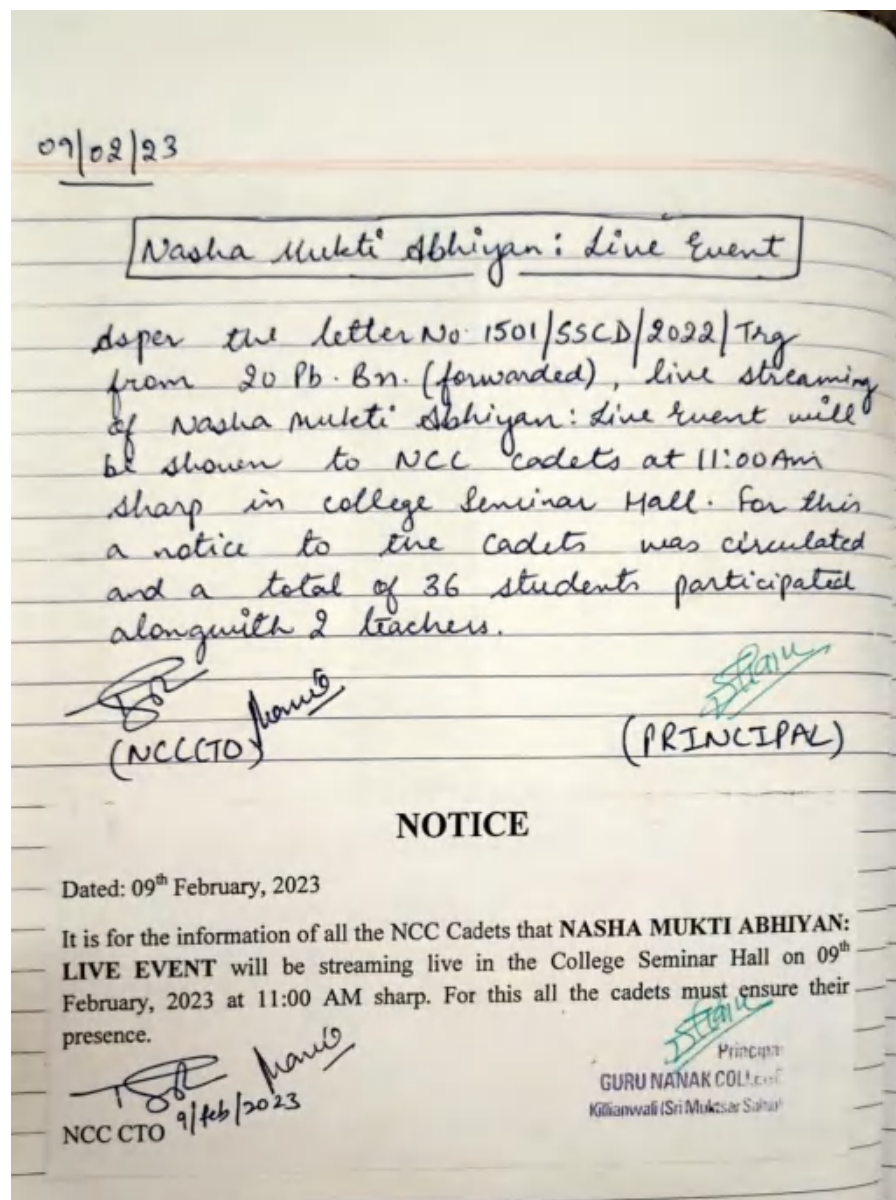 09/02/23
Nasha Mukti Abhiyan: Live Event
Asper the letter No. 1501/SSCD/2022/Trg
from 20 Pb. Bn. (forwarded), live streaming
of Nasha Mukti Abhiyan: Live Event will
be shown to NCC cadets at 11:00 Am
sharp in college Seminar Hall. For this
a notice to the cadets was circulated
and a total of 36 students participated
alongwith 2 teachers.
(NCCCTO)
(PRINCIPAL)
NOTICE
Dated: 09th February, 2023
It is for the information of all the NCC Cadets that NASHA MUKTI ABHIYAN:
LIVE EVENT will be streaming live in the College Seminar Hall on 09th
February, 2023 at 11:00 AM sharp. For this all the cadets must ensure their
presence.
Principal
GURU NANAK COLLEGE
Killianwali (Sri Muktsar Sahib)
9/feb/2023
NCC CTO